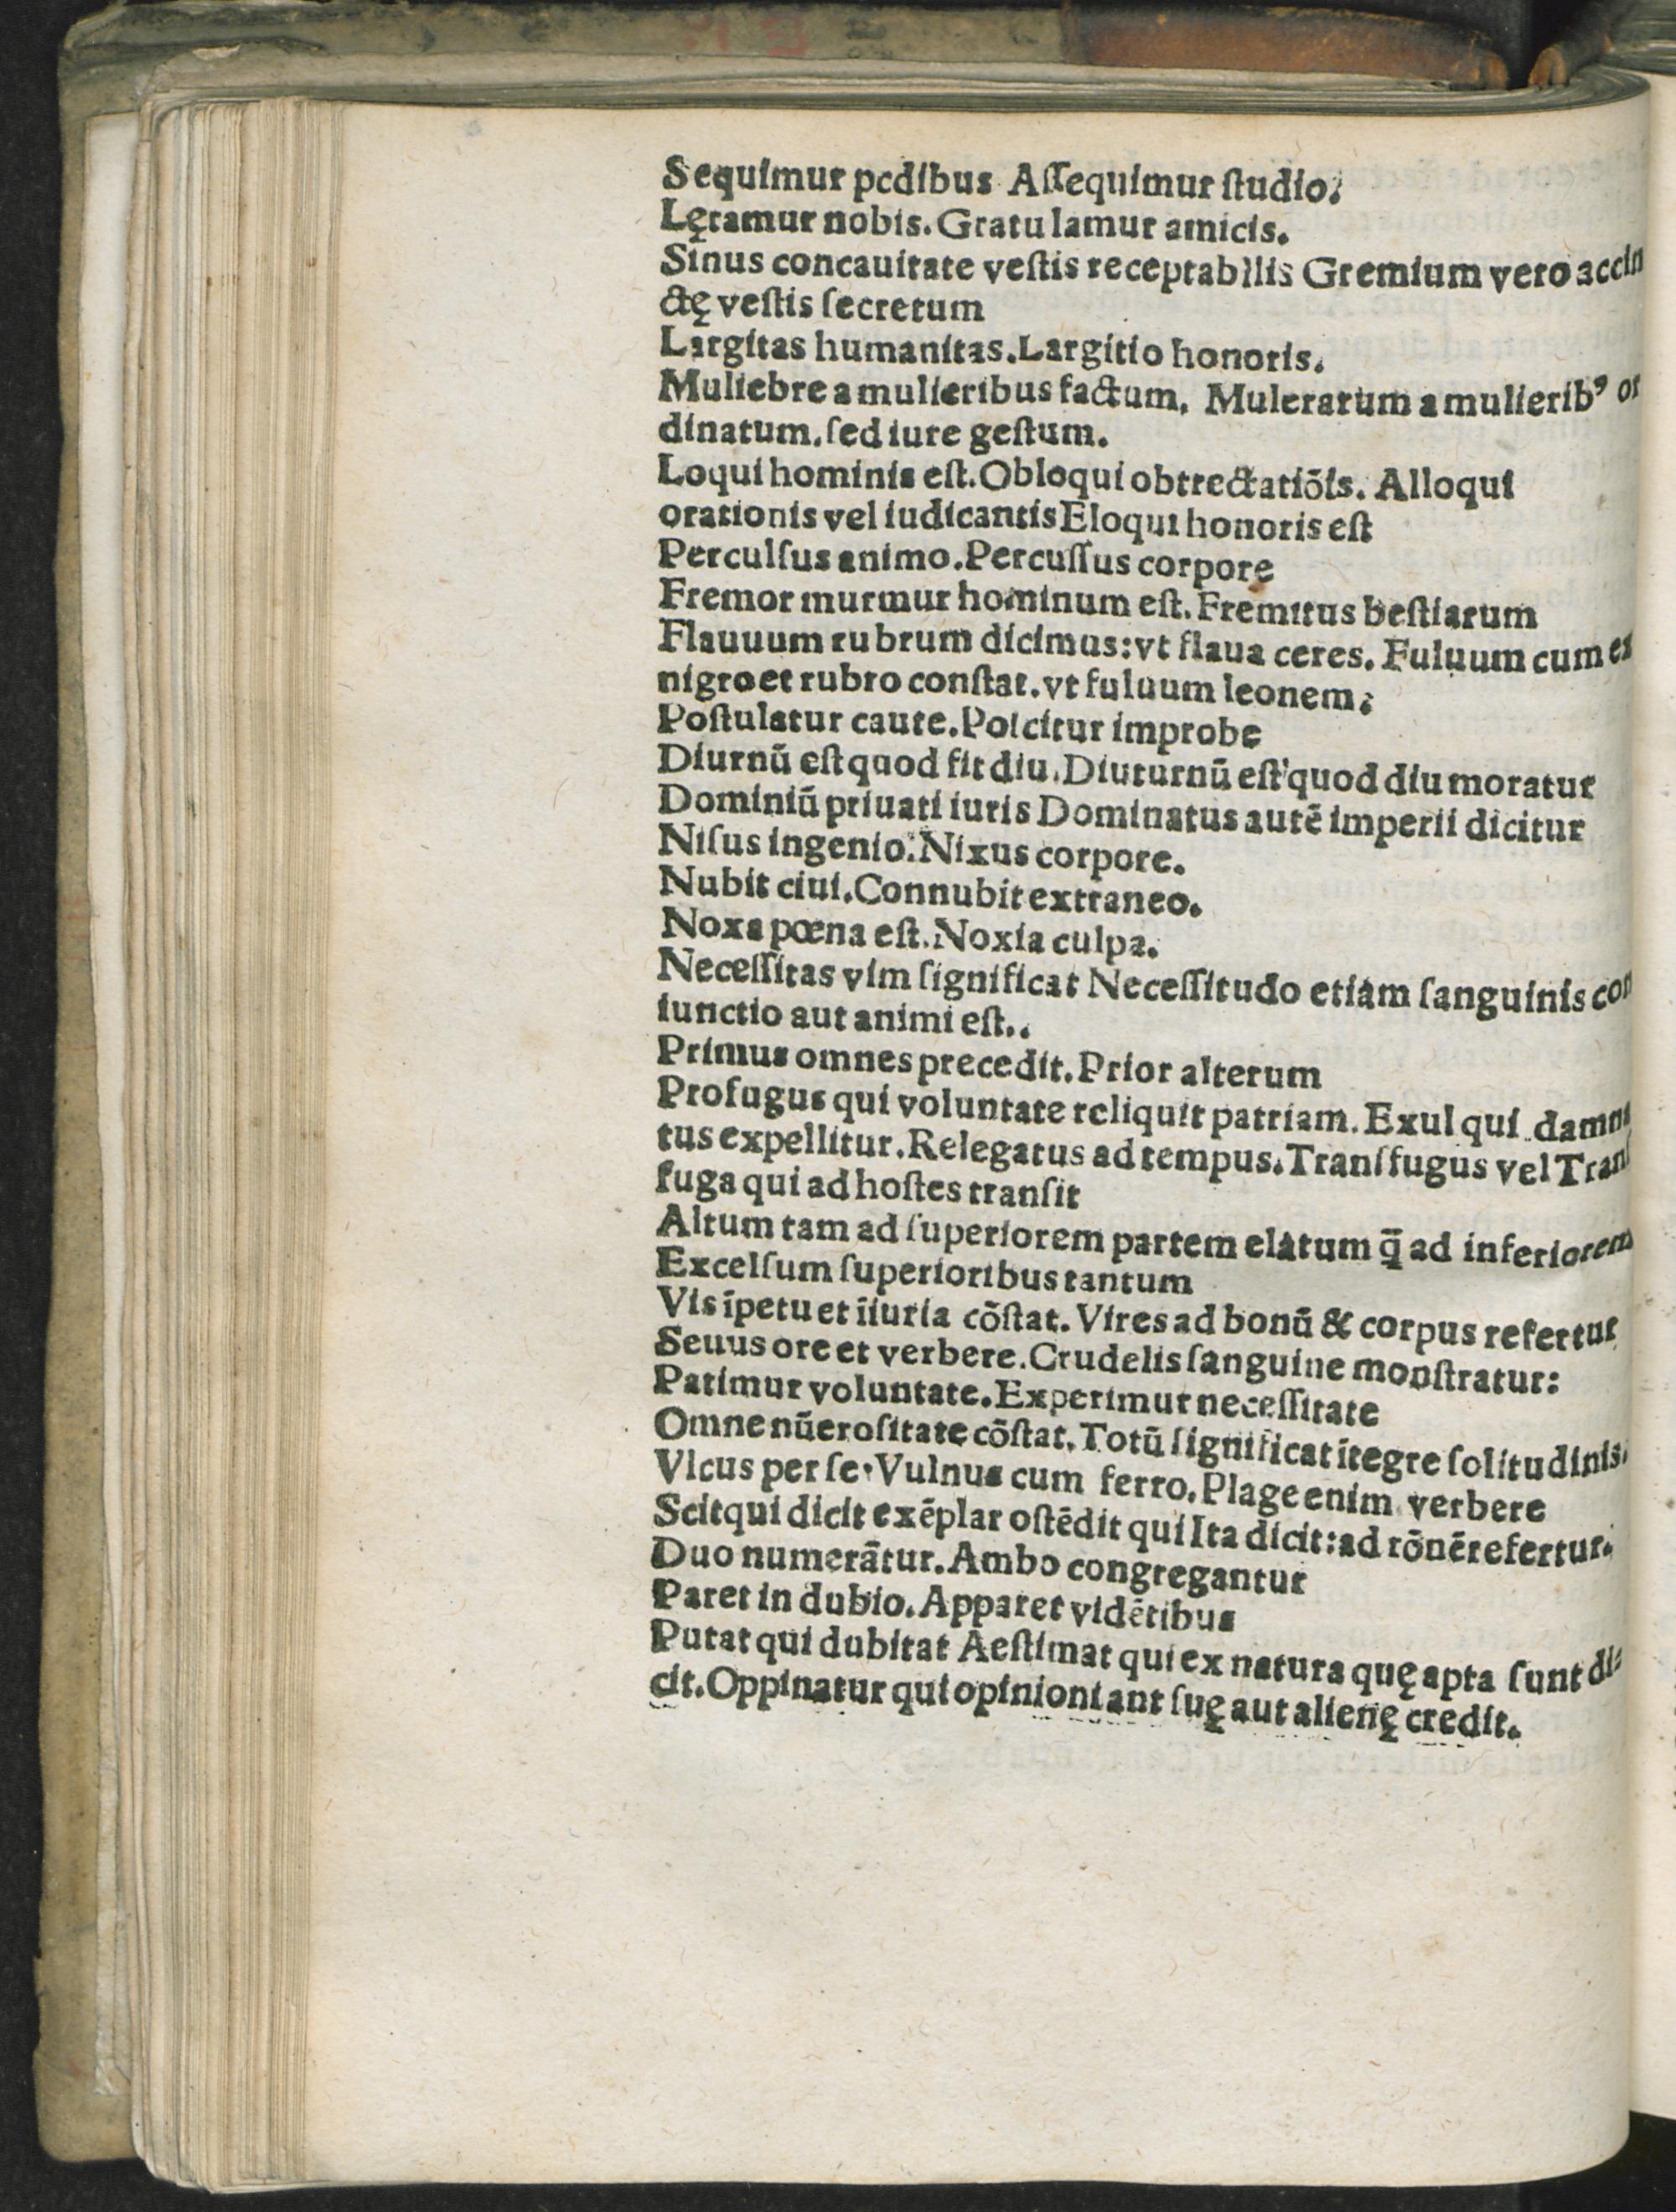 Sequimur pedibus Aſſequimur ſtudio.
Lętamur nobis. Gratulamur amicis.
Sinus concauitate veſtis receptabilis Gremium vero accin
ctę veſtis ſecretum
Largitas humanitas. Largitio honoris.
Muliebre a mulieribus factum, Muleratum a mulieribꝰ or
dinatum. ſed iure geſtum.
Loqui hominis eſt. Obloqui obtrectatiōis. Alloqui
orationis vel iudicantis Eloqui honoris eſt
Perculſus animo. Percuſſus corpore
Fremor murmur hominum eſt. Fremitus beſtiarum
Flauuum rubrum dicimus: vt flaua ceres. Fuluum cum ex
nigro et rubro conſtat. vt fuluum leonem.
Poſtulatur caute. Poſcitur improbe
Diurnū eſt quod fit diu. Diuturnū eſt quod diu moratur
Dominiū priuati iuris Dominatus autē imperii dicitur
Niſus ingenio. Nixus corpore.
Nubit ciui. Connubit extraneo.
Noxa pœna eſt. Noxia culpa.
Neceſſitas vim ſignificat Neceſſitudo etiam ſanguinis con
iunctio aut animi eſt..
Primus omnes precedit. Prior alterum
Profugus qui voluntate reliquit patriam. Exul qui damna
tus expellitur. Relegatus ad tempus. Tranſfugus vel Tranſ
fuga qui ad hoſtes tranſit
Altum tam ad ſuperiorem partem elatum q̄ ad inferiorem
Excelſum ſuperioribus tantum
Vis īpetu et īiuria cōſtat. Vires ad bonū & corpus refertur
Seuus ore et verbere. Crudelis ſanguine monſtratur:
Patimur voluntate. Experimur neceſſitate
Omne nūeroſitate cōſtat. Totū ſignificat ītegre ſolitudinis.
Vlcus per ſe. Vulnus cum ferro. Plage enim verbere
Scit qui dicit exēplar oſtēdit qui Ita dicit: ad rōnē refertur.
Duo numerātur. Ambo congregantur
Paret in dubio. Apparet vidētibus
Putat qui dubitat Aeſtimat qui ex natura quę apta ſunt di⸗
cit. Oppinatur qui opinioni ant ſuę aut alienę credit.